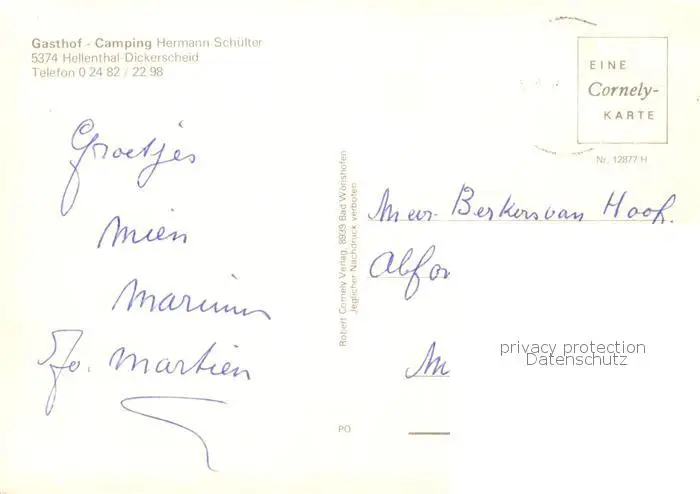 Gasthof - Camping Hermann Schülter
5374 Hellenthal-Dickerscheid
Telefon 0 24 82 / 22 98
EINE
Cornely-
KARTE
Nr. 12877 H
Groetjes
Mien
Marinus
Jo. Martien
Robert Cornely Verlag, 8939 Bad Wörishofen
Jeglicher Nachdruck verboten
Mevr. Berkers van Hoof.
privacy protection
Datenschutz
PO